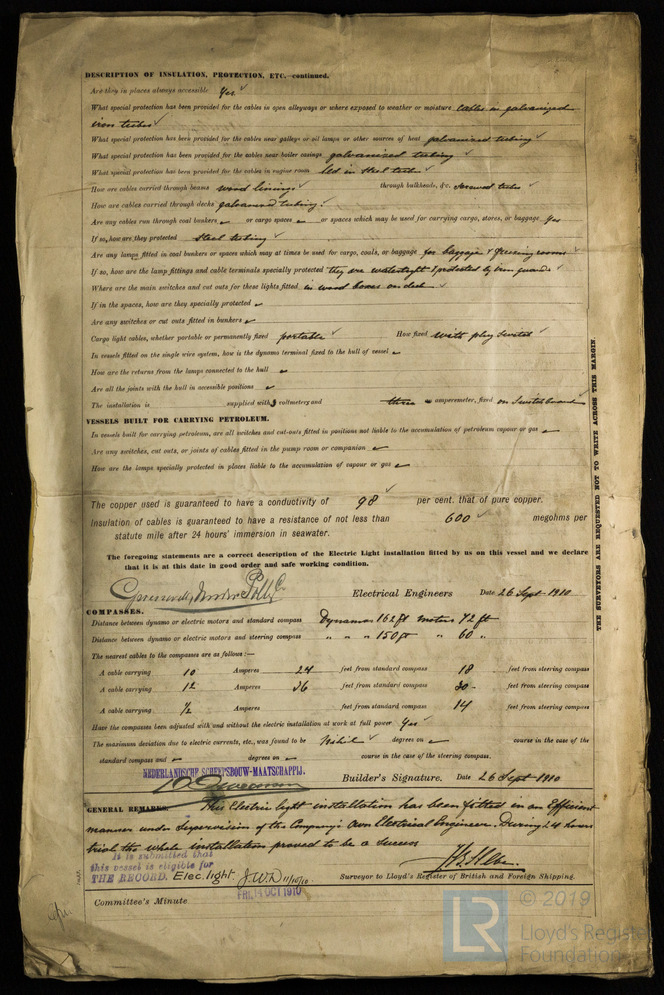 DESCRIPTION OF INSULATION, PROTECTION, ETC.—continued.
Are they in places always accessible Yes ✓
What special protection has been provided for the cables in open alleyways or where exposed to weather or moisture Cables in galvanized
iron tubes ✓
What special protection has been provided for the cables near galleys or oil lamps or other sources of heat galvanized tubing ✓
What special protection has been provided for the cables near boiler casings galvanized tubing ✓
What special protection has been provided for the cables in engine room led in Steel tubes ✓
How are cables carried through beams wood linings ✓ through bulkheads, &c. screwed tubes ✓
How are cables carried through decks galvanized tubing ✓
Are any cables run through coal bunkers or cargo spaces or spaces which may be used for carrying cargo, stores, or baggage Yes
If so, how are they protected Steel tubing ✓
Are any lamps fitted in coal bunkers or spaces which may at times be used for cargo, coals, or baggage for baggage & freezing rooms ✓
If so, how are the lamp fittings and cable terminals specially protected they are watertight & protected by iron guards ✓
Where are the main switches and cut outs for these lights fitted in wood boxes on deck ✓
If in the spaces, how are they specially protected
Are any switches or cut outs fitted in bunkers
Cargo light cables, whether portable or permanently fixed portable ✓ How fixed with plug Switch ✓
In vessels fitted on the single wire system, how is the dynamo terminal fixed to the hull of vessel
How are the returns from the lamps connected to the hull
Are all the joints with the hull in accessible positions
The installation is supplied with 3 voltmeters and three amperemeter, fixed on Switch board ✓
VESSELS BUILT FOR CARRYING PETROLEUM.
In vessels built for carrying petroleum, are all switches and cut-outs fitted in positions not liable to the accumulation of petroleum vapour or gas
Are any switches, cut outs, or joints of cables fitted in the pump room or companion
How are the lamps specially protected in places liable to the accumulation of vapour or gas
The copper used is guaranteed to have a conductivity of 98 ✓ per cent. that of pure copper.
Insulation of cables is guaranteed to have a resistance of not less than 600 ✓ megohms per
statute mile after 24 hours' immersion in seawater.
The foregoing statements are a correct description of the Electric Light installation fitted by us on this vessel and we declare
that it is at this date in good order and safe working condition.
Electrical Engineers Date 26 Sept 1910
COMPASSES.
Distance between dynamo or electric motors and standard compass Dynamos 162 ft motors 72 ft
Distance between dynamo or electric motors and steering compass " " " 150 ft " 60 "
The nearest cables to the compasses are as follows:—
A cable carrying 10 Amperes 24 feet from standard compass 18 feet from steering compass
A cable carrying 12 Amperes 36 feet from standard compass 30 feet from steering compass
A cable carrying ½ Amperes feet from standard compass 14 feet from steering compass
Have the compasses been adjusted with and without the electric installation at work at full power Yes ✓
The maximum deviation due to electric currents, etc., was found to be Nihil ✓ degrees on course in the case of the
standard compass and degrees on course in the case of the steering compass.
NEDERLANDSCHE SCHEEPSBOUW-MAATSCHAPPIJ.
Builder's Signature. Date 26 Sept 1910
GENERAL REMARKS. This Electric light installation has been fitted in an Efficient
manner under Supervision of the Company's Own Electrical Engineer. During 24 hours
trial the whole installation proved to be a Success
It is submitted that
this vessel is eligible for
THE RECORD. Elec. light. J.W.D. 11/10/10
Surveyor to Lloyd's Register of British and Foreign Shipping.
FRI. 14 OCT 1910
Committee's Minute
THE SURVEYORS ARE REQUESTED NOT TO WRITE ACROSS THIS MARGIN.
LR
© 2019
Lloyd's Register
Foundation